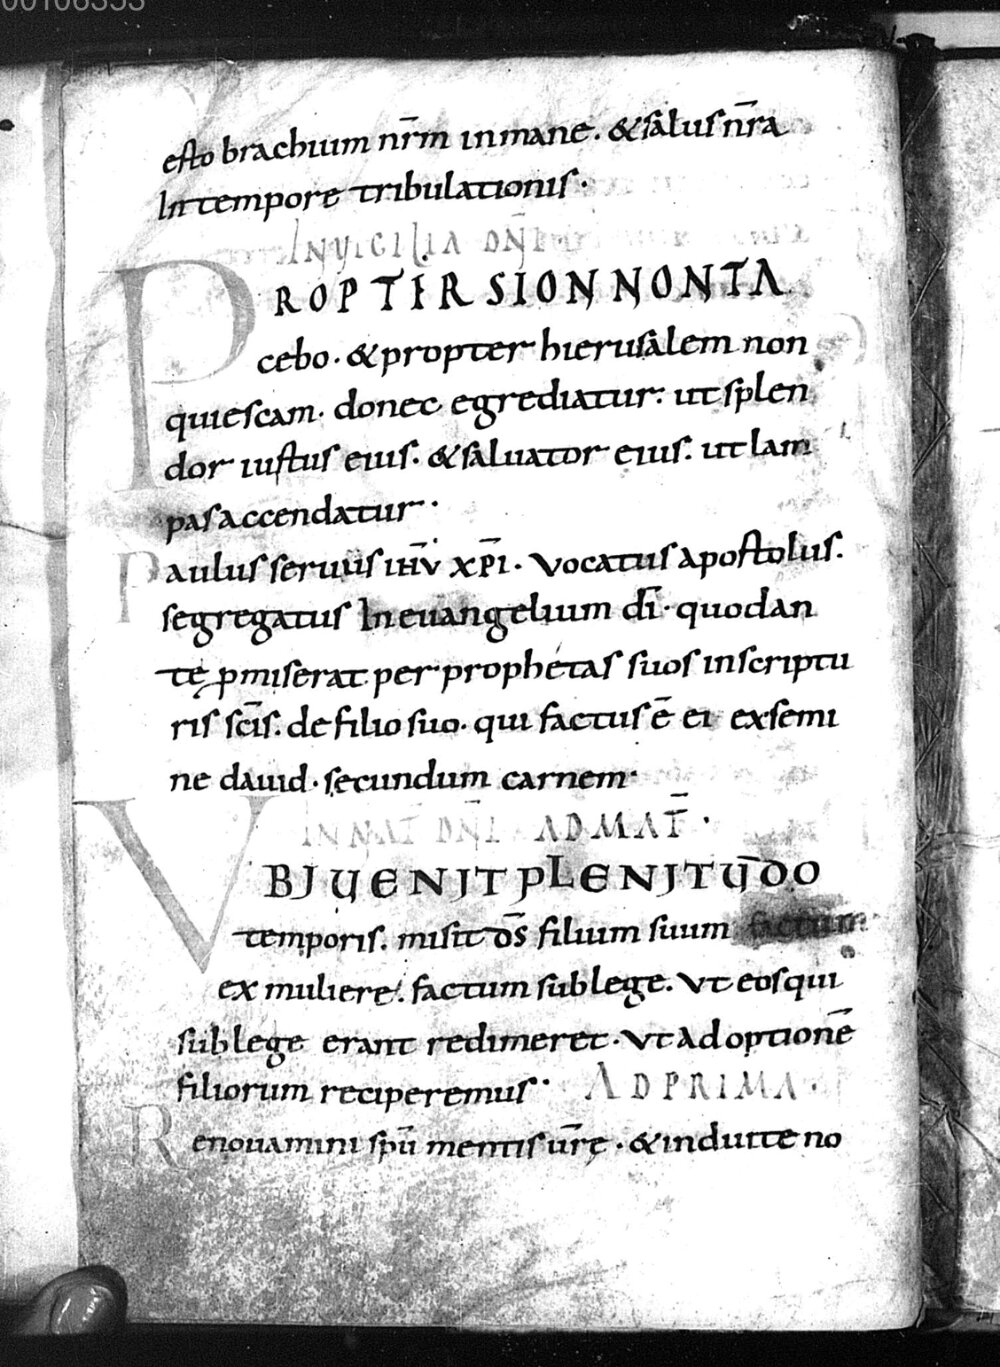 00106353
esto brachium nr̄m inmane. &salus nr̄a
Intempore tribulationis.
INVIGILIA DN̄I
PROPTER SION NON TA
cebo. &propter hierusalem non
quiescam. donec egrediatur. ut splen
dor iustus eius. &saluator eius. ut lam
pas accendatur.
Paulus seruus ihū xp̄i. Vocatus apostolus.
segregatus In euangelium dī. quod an
tę pmiserat per prophetas suos inscriptu
ris sc̄is. de filio suo. qui factus ē ei exsemi
ne dauid. secundum carnem.
IN NAT DN̄I AD MAT̄.
VBI UENIT PLENITŪDO
temporis. misit ds̄ filium suum factum
ex muliere. factum sub lege. Vt eos qui
sub lege erant redimeret. Vt ad optionē
filiorum reciperemus. AD PRIMA.
Renouamini spū mentis ūrę. &induite no